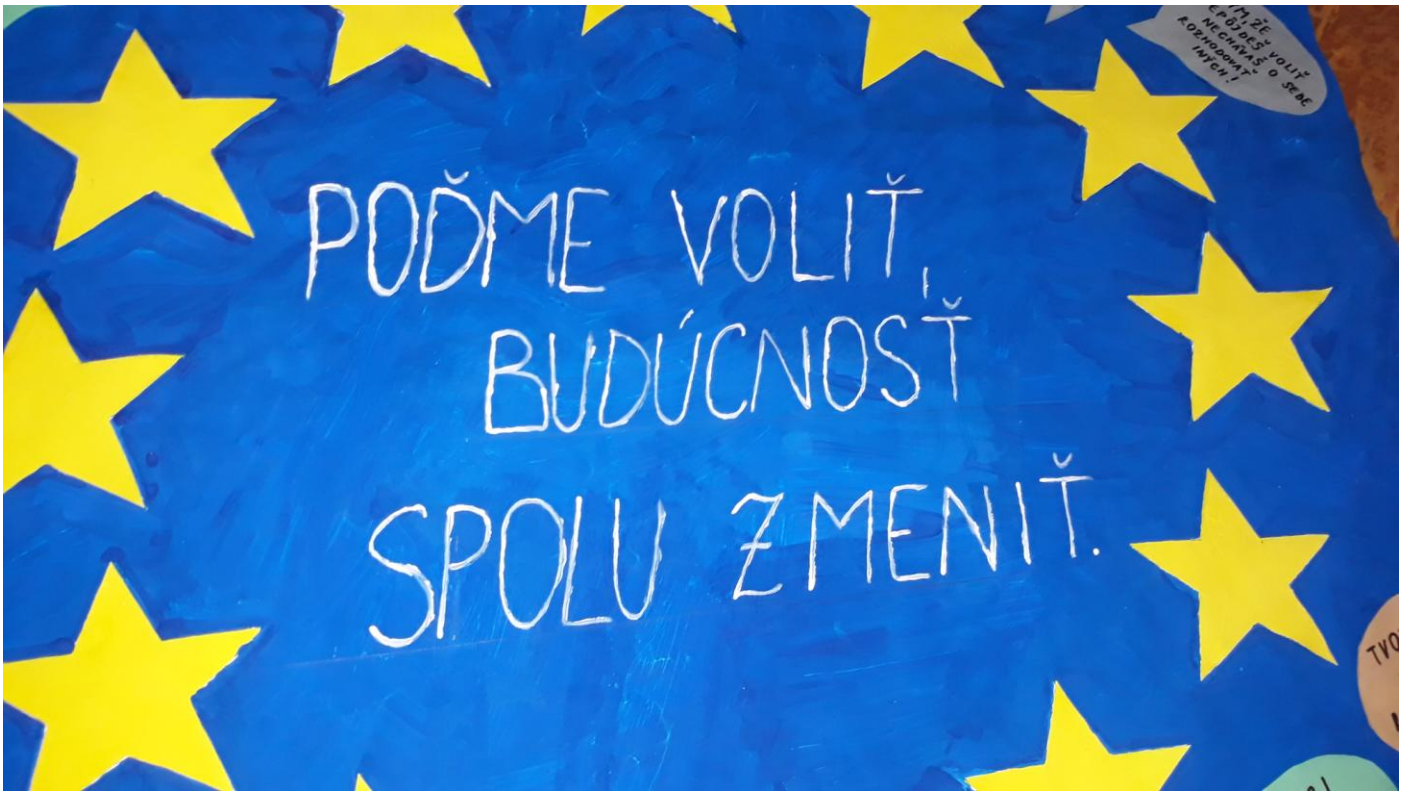 POĎME VOLIŤ,
BUDÚCNOSŤ
SPOLU ZMENIŤ.
ŽE
VOLIŤ
NECHÁVAŠ O SEBE
ROZHODOVAŤ
INÝCH!